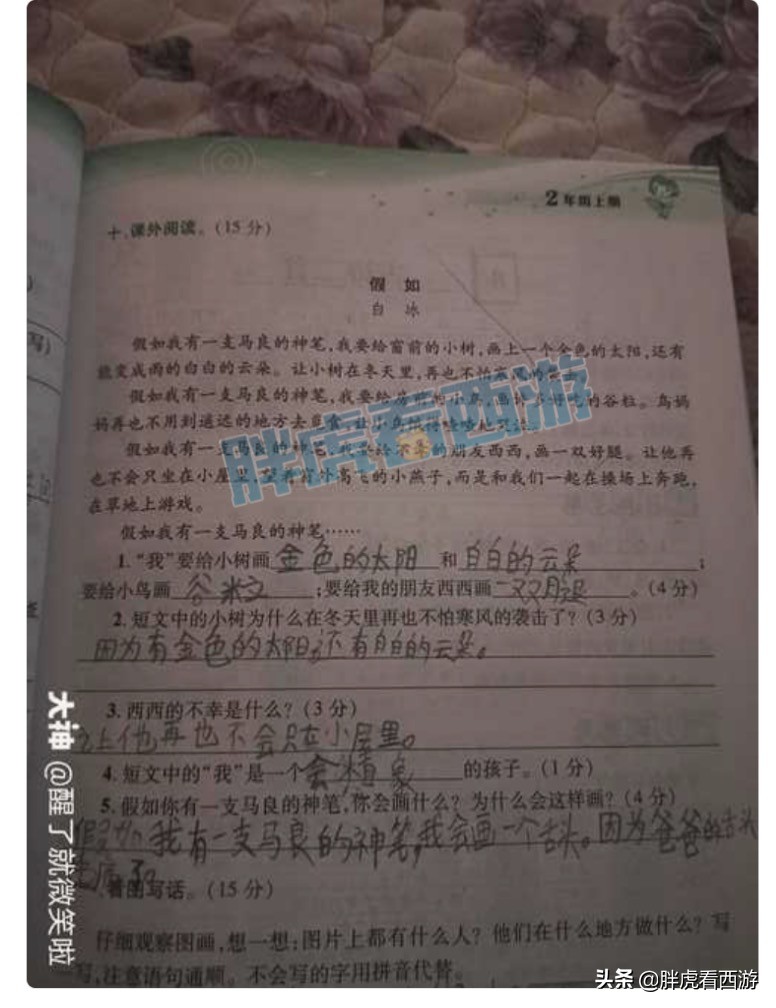 2年级上册
十.课外阅读。(15分)
假如
白冰
假如我有一支马良的神笔,我要给窗前的小树,画上一个金色的太阳,还有
能变成雨的白白的云朵。让小树在冬天里,再也不怕寒风的
假如我有一支马良的神笔,我要给 的小鸟,画许多好吃的谷粒。鸟妈
妈再也不用到遥远的地方去觅食,让小鸟
假如我有一支马良的神笔,我要给不幸的朋友西西,画一双好腿。让他再
也不会只坐在小屋里,望着窗外高飞的小燕子,而是和我们一起在操场上奔跑,
在草地上游戏。
假如我有一支马良的神笔……
1.“我”要给小树画 金色的太阳 和 白白的云朵 ;
要给小鸟画 谷粒 ;要给我的朋友西西画 双腿 。(4分)
2.短文中的小树为什么在冬天里再也不怕寒风的袭击了?(3分)
因为有金色的太阳还有白白的云朵。
3.西西的不幸是什么?(3分)
让他再也不会只在小屋里。
4.短文中的“我”是一个 会 象 的孩子。(1分)
5.假如你有一支马良的神笔,你会画什么?为什么会这样画?(4分)
假如我有一支马良的神笔,我会画一个舌头。因为爸爸的舌头
看图写话。(15分)
仔细观察图画,想一想:图片上都有什么人?他们在什么地方做什么?写
写,注意语句通顺。不会写的字用拼音代替。
胖虎看西游
大神 @醒了就微笑啦
头条 @胖虎看西游